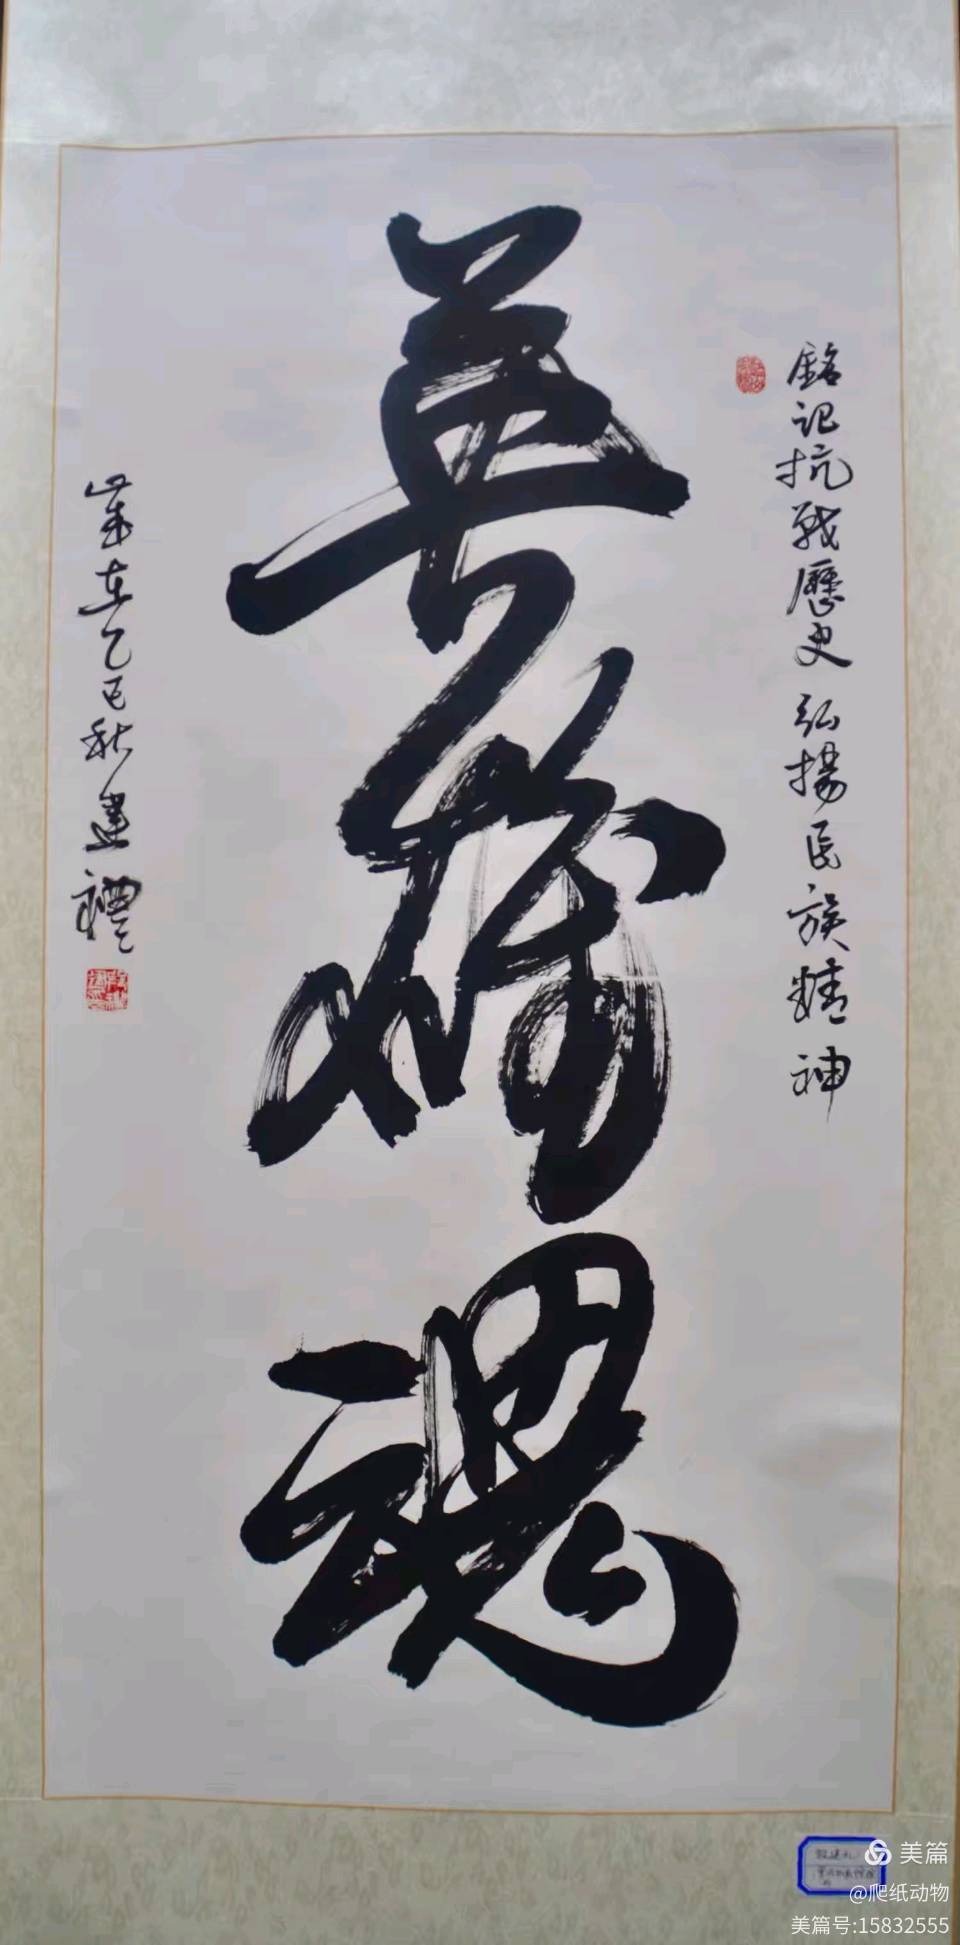 銘記抗戰歷史 弘揚民族精神
華魂
歲在乙巳秋建禮
美篇
@爬纸动物
美篇号:15832555